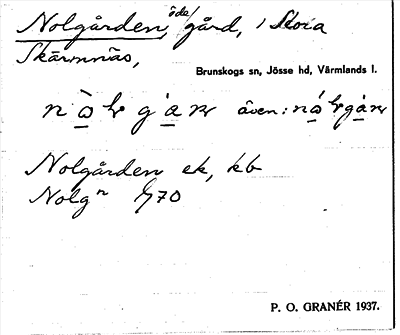 Nolgården, öde/gård, i Stora
Skärmnäs,
Brunskogs sn, Jösse hd, Värmlands l.
även:
Nolgården ek, kb
Nolgn 1/70
P. O. GRANÉR 1937.